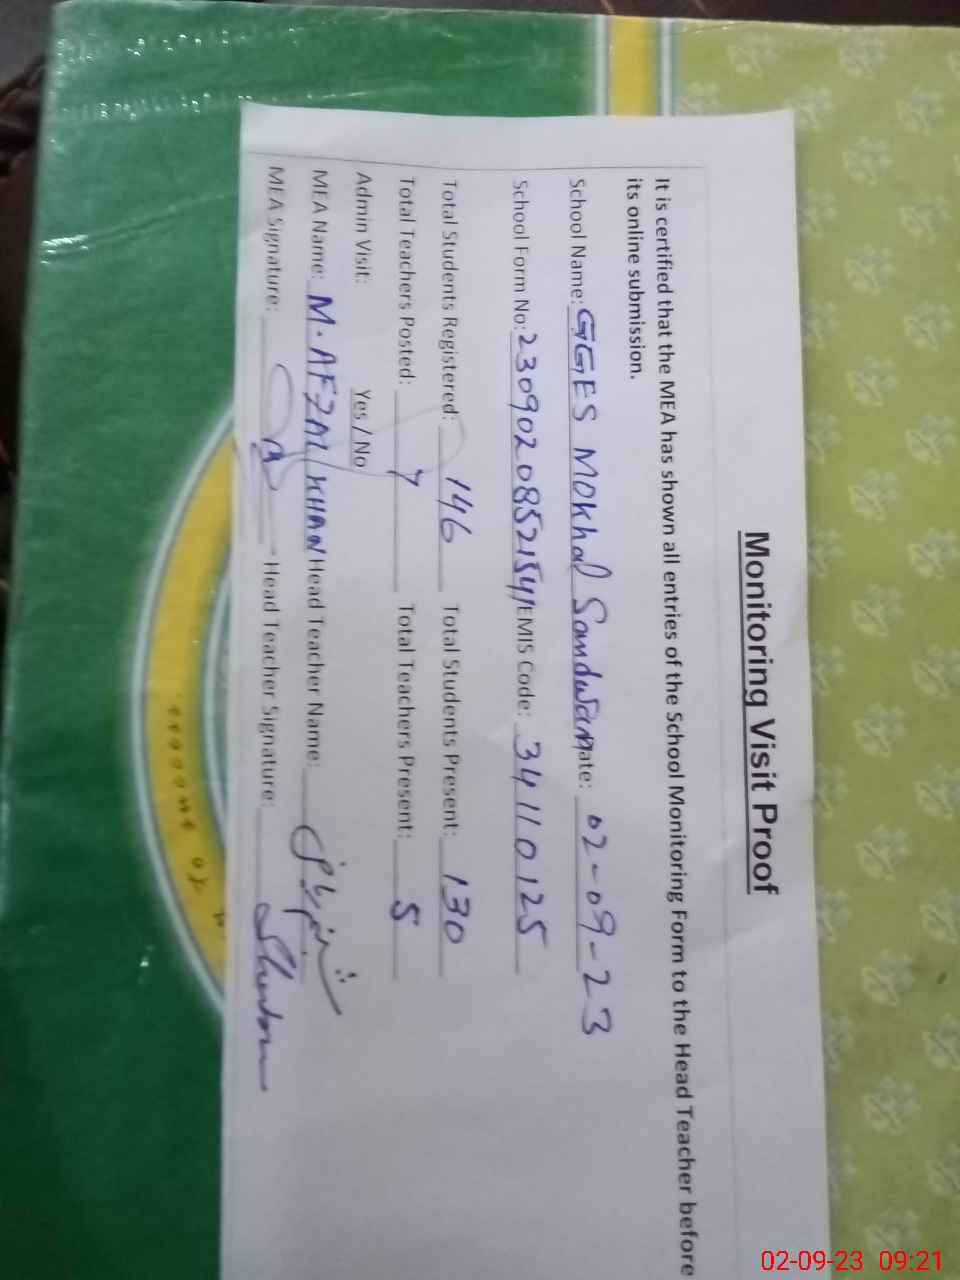 Monitoring Visit Proof
It is certified that the MEA has shown all entries of the School Monitoring Form to the Head Teacher before
its online submission.
School Name: GGES Mokhal Sandwan Date: 02-09-23
School Form No: 23090208521541 EMIS Code: 34110125
Total Students Registered: 146 Total Students Present: 130
Total Teachers Posted: 7 Total Teachers Present: 5
Admin Visit: Yes / No
MEA Name: M. AFZAL KHAN Head Teacher Name:
MEA Signature: Head Teacher Signature:
02-09-23 09:21